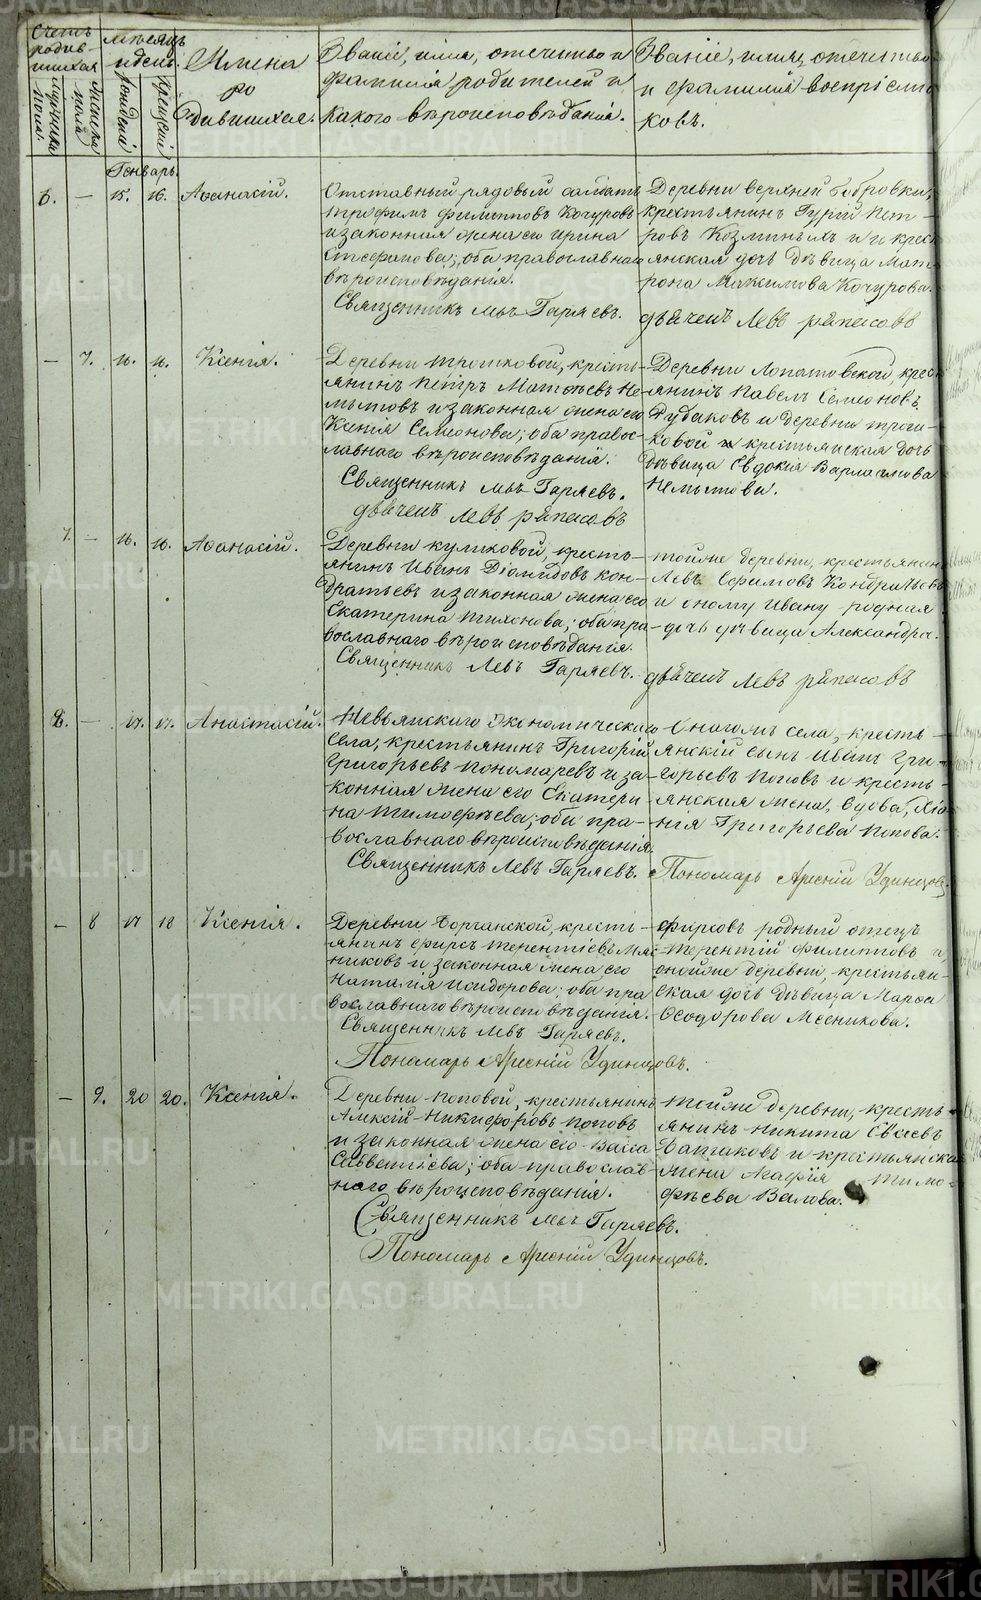 Счетъ родив-шихся
Мужеска пола.
Женска пола
Мѣсяцъ и день
рожденія
крещенія
Имена ро
дившихся.
Званіе, имя, отечество и
фамилія родителей и
какого вѣроисповѣданія.
Званіе, имя, отечество
и фамилія воспріемни
ковъ.
Генварь.
6. — 15. 16. Аѳанасій.
Отставный рядовый солдатъ
Трофимъ Филипповъ Кочуровъ
и законная жена его Ирина
оба православнаго
вѣроисповѣданія.
Священникъ Левъ Гаряевъ.
Деревни Верхней Бобровки,
крестьянинъ Гурій Пет-
ровъ Козминыхъ и крест
янская дочь дѣвица Мат
рона Максимова Кочурова.
Дьячекъ Левъ
— 7. 16. 16. Ксенія.
Деревни крестья-
янинъ Петръ Матвѣевъ Не-
мытовъ и законная жена его
Ксенія Семионова; оба правос-
лавнаго вѣроисповѣданія.
Священникъ Левъ Гаряевъ.
Дьячекъ Левъ
Деревни Лопатовской, крес
янинъ Павелъ Семионовъ
и деревни
ковой крестьянская дочь
дѣвица Евдокия Варламова
Немытова.
7. — 16. 16. Аѳанасій.
Деревни Куликовой, кресть-
янинъ Иванъ Діомидовъ Кон-
дратьевъ и законная жена его
Екатерина Тихонова; оба пра-
вославнаго вѣроисповѣданія.
Священникъ Левъ Гаряевъ.
тойже деревни, крестьянин
Левъ Ефимовъ Кондратьевъ
и оному Ивану родная
дочь дѣвица Александра.
Дьячекъ Левъ
8. — 17. 17. Анастасій.
Невьянскаго Экономическаго
села, крестьянинъ Григорій
Григорьевъ Пономаревъ и за-
конная жена его Екатери
на Тимофѣева; оба пра-
вославнаго вѣроисповѣданія.
Священникъ Левъ Гаряевъ.
Онагожъ села, кресть-
янскій сынъ Иванъ Гри-
горьевъ Поповъ и кресть-
янская жена, вдова,
Григорьева Попова.
Пономарь Арсеній Удинцовъ.
— 8 17 18 Ксенія.
Деревни крестья-
янинъ Фирсъ Терентіевъ Мяс
никовъ и законная жена его
Наталія Исидорова; оба пра
вославнаго вѣроисповѣданія.
Священникъ Левъ Гаряевъ.
Пономарь Арсеній Удинцовъ.
Фирсовъ родный отецъ
Терентій Филиповъ и
онойже деревни, крестьян-
ская дочь дѣвица Марѳа
Ѳеодорова Мясникова.
— 9. 20 20. Ксенія.
Деревни Поповой, крестьянинъ
Алексій Никифоровъ Поповъ
и законная жена его Васса
оба православ-
наго вѣроисповѣданія.
Священникъ Левъ Гаряевъ.
Пономарь Арсеній Удинцовъ.
тойже деревни, кресть-
янинъ Никита
и крестьянская
жена Агафія Тимо-
фѣева
METRIKI.GASO-URAL.RU